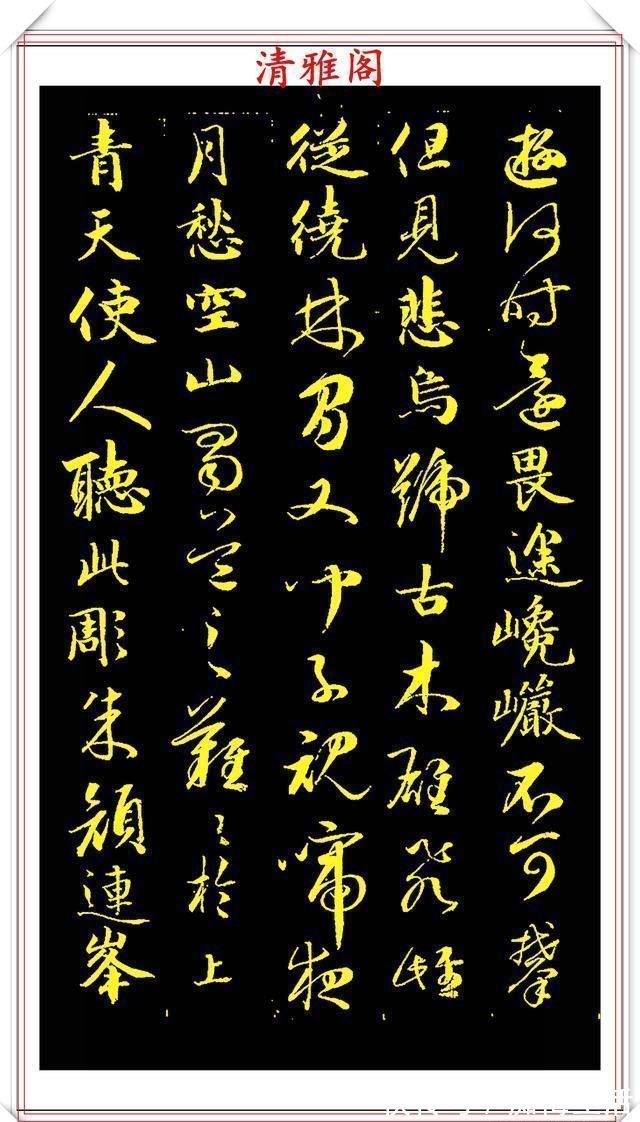 清雅阁
遊何时還畏途巉巖不可攀
但見悲鳥號古木雄飛雌
從繞林間又聞子規啼夜
月愁空山蜀道之難々於上
青天使人聽此彫朱顏連峯